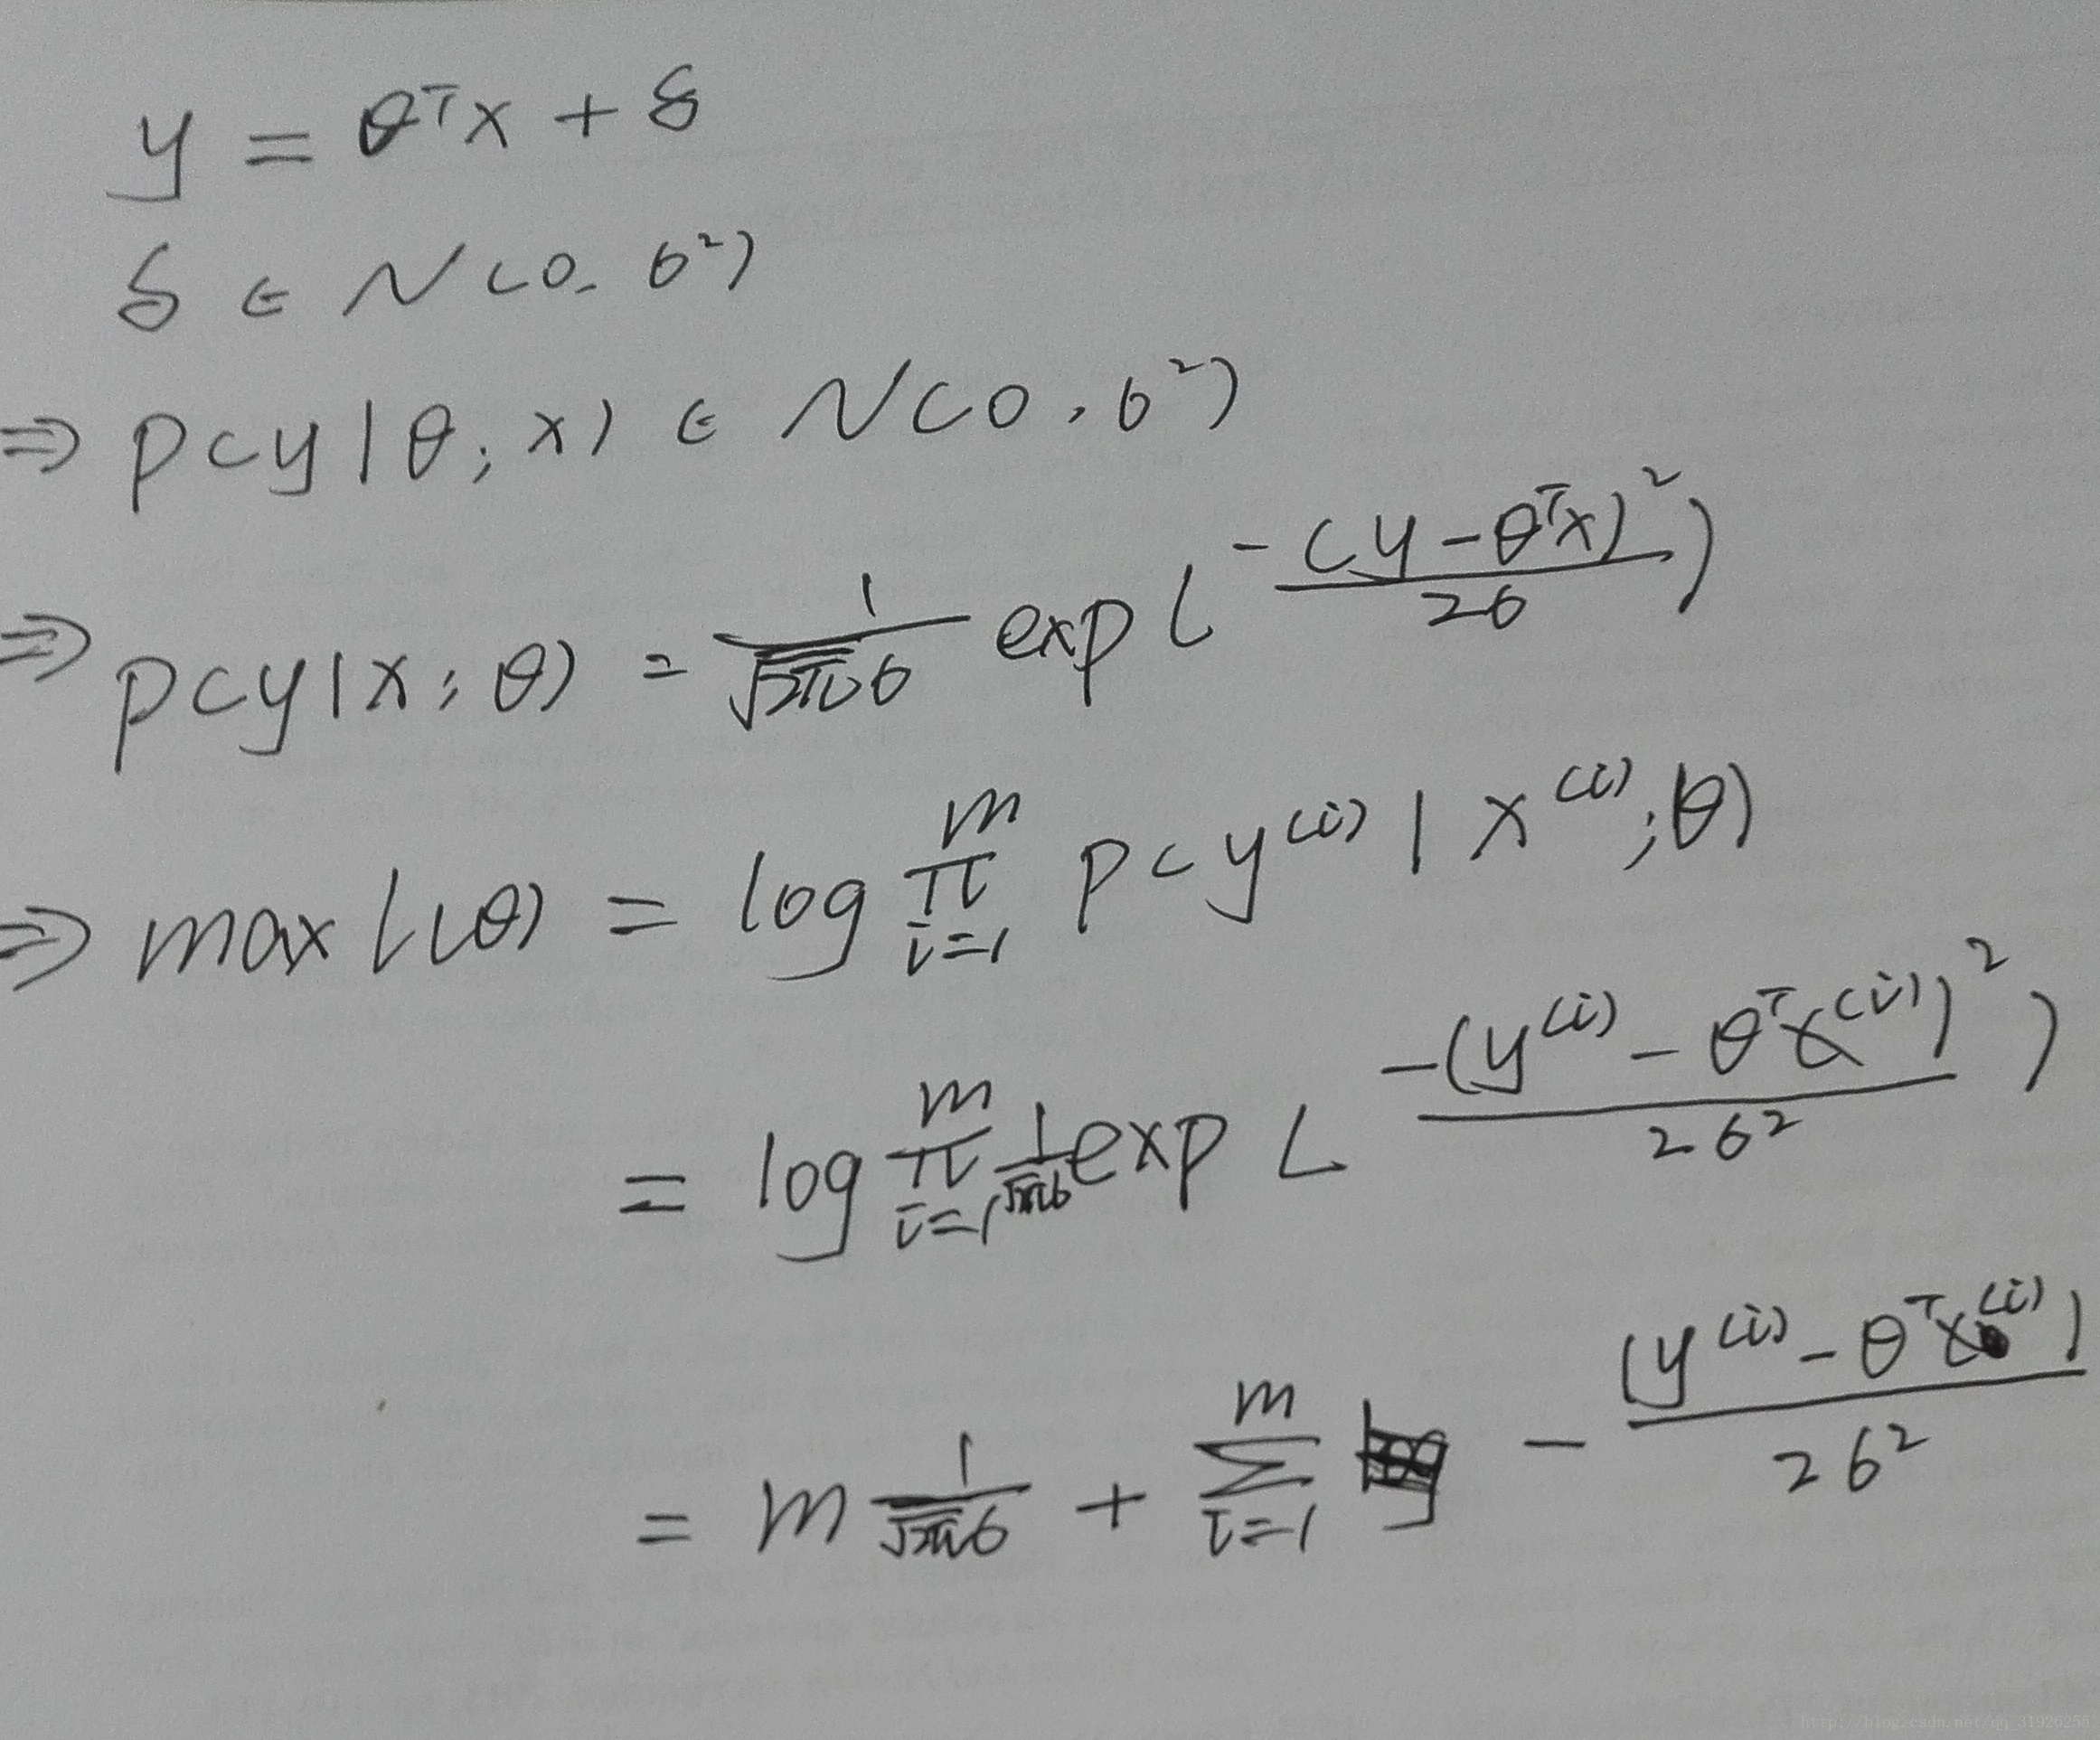 y = θᵀx + δ
δ ∈ N(0, σ²)
⇒ p(y|θ; x) ∈ N(0, σ²)
⇒ p(y|x; θ) = 1/(√(2π)σ) exp(-(y-θᵀx)²/(2σ))
⇒ max l(θ) = log ∏_{i=1}^{m} p(y⁽ⁱ⁾|x⁽ⁱ⁾; θ)
= log ∏_{i=1}^{m} 1/(√(2π)σ) exp(-(y⁽ⁱ⁾ - θᵀx⁽ⁱ⁾)²/(2σ²))
= m 1/(√(2π)σ) + ∑_{i=1}^{m} - (y⁽ⁱ⁾ - θᵀx⁽ⁱ⁾)/(2σ²)
http://blog.csdn.net/qq_31926255